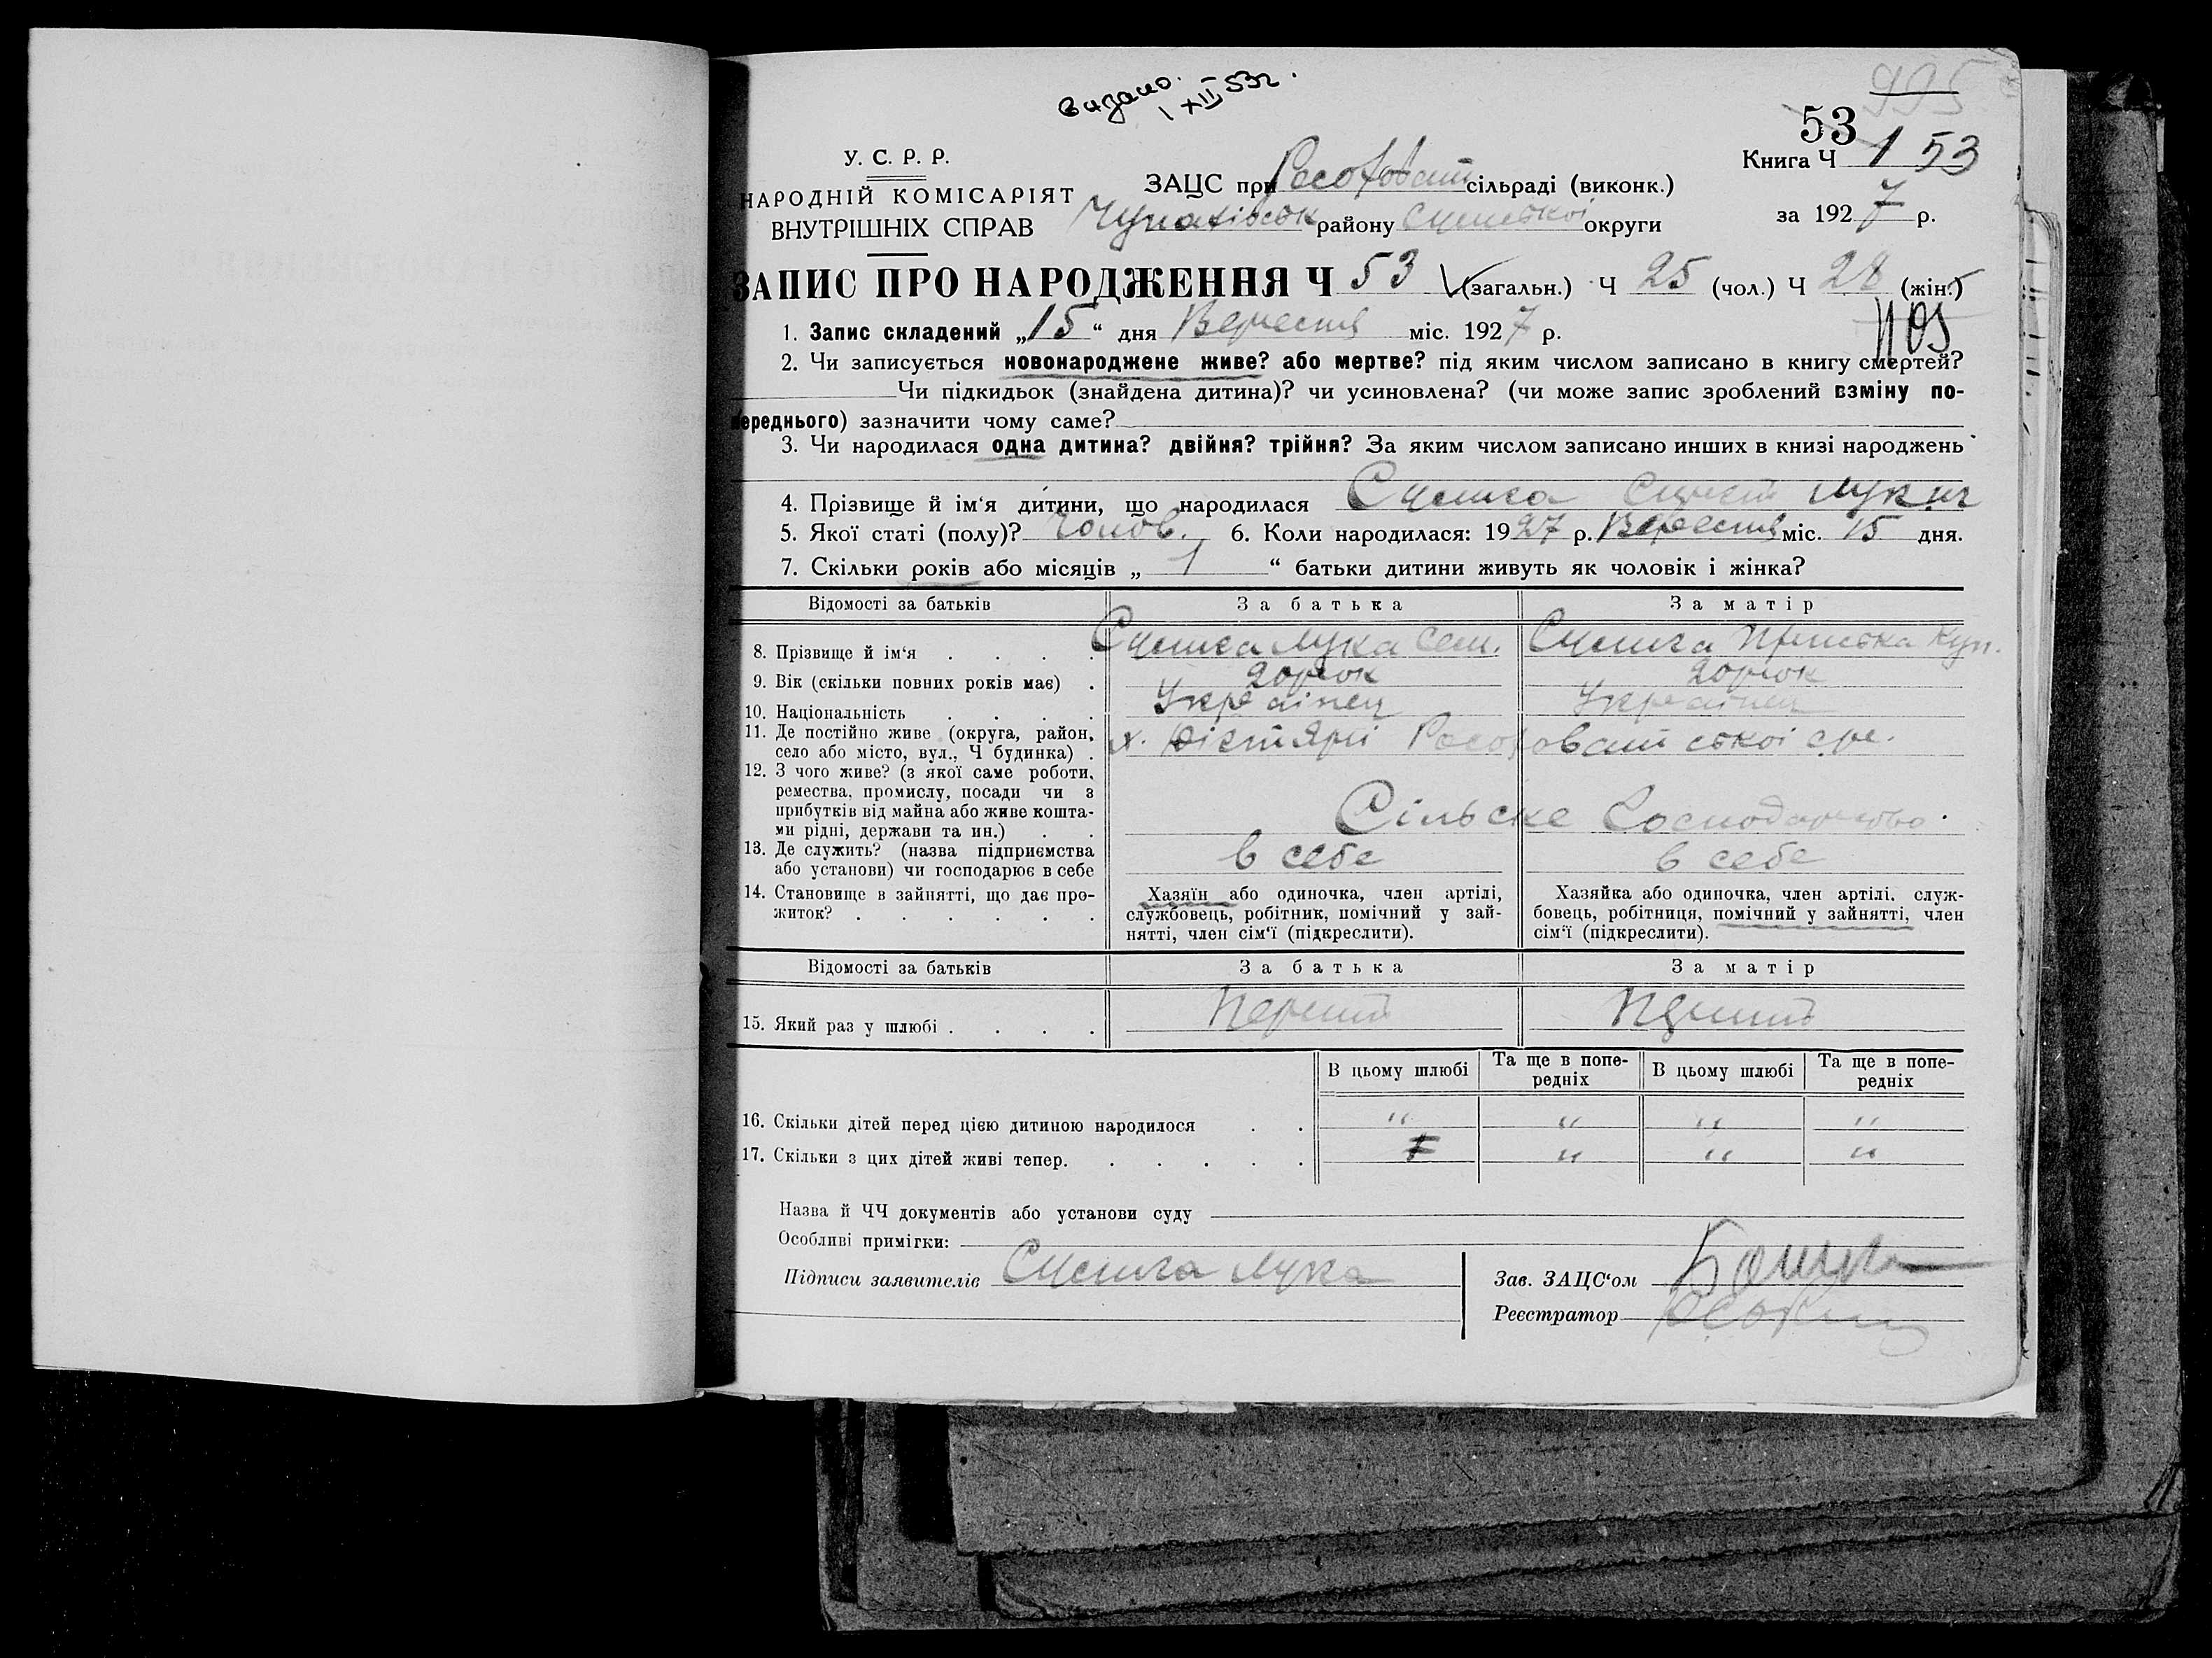 видано.
1 XII 53г.
995
53
У. С. Р. Р.
НАРОДНІЙ КОМІСАРІЯТ
ВНУТРІШНІХ СПРАВ
ЗАЦС при сільраді (виконк.)
Чупахівськ району Сумської округи
Книга Ч 1 53
за 1927 р.
ЗАПИС ПРО НАРОДЖЕННЯ Ч 53 (загальн.) Ч 25 (чол.) Ч 28 (жін.)
1105
1. Запис складений „15“ дня Вересня міс. 1927 р.
2. Чи записується новонароджене живе? або мертве? під яким числом записано в книгу смертей?
Чи підкидьок (знайдена дитина)? чи усиновлена? (чи може запис зроблений взміну по-
переднього) зазначити чому саме?
3. Чи народилася одна дитина? двійня? трійня? За яким числом записано инших в книзі народжень
4. Прізвище й ім‘я дитини, що народилася
5. Якої статі (полу)? Чолов. 6. Коли народилася: 1927 р. Вересня міс. 15 дня.
7. Скільки років або місяців „ 1 “ батьки дитини живуть як чоловік і жінка?
Відомості за батьків За батька За матір
8. Прізвище й ім‘я . . . . Лука Сем. Пріська Куп.
9. Вік (скільки повних років має) . 20 рок 20 рок
10. Національність . . . . Українец Українец
11. Де постійно живе (округа, район,
село або місто, вул., Ч будинка) . х.
12. З чого живе? (з якої саме роботи,
ремества, промислу, посади чи з
прибутків від майна або живе кошта-
ми рідні, держави та ин.) . . Сільске Господарство.
13. Де служить? (назва підприємства
або установи) чи господарює в себе в себе в себе
14. Становище в зайнятті, що дає про-
житок? . . . . . .
Хазяїн або одиночка, член артілі,
службовець, робітник, помічний у зай-
нятті, член сім‘ї (підкреслити).
Хазяйка або одиночка, член артілі, служ-
бовець, робітниця, помічний у зайнятті, член
сім‘ї (підкреслити).
Відомості за батьків За батька За матір
15. Який раз у шлюбі . . . . Перший
В цьому шлюбі Та ще в попе-
редніх В цьому шлюбі Та ще в попе-
редніх
16. Скільки дітей перед цією дитиною народилося . . “ “ “ “
17. Скільки з цих дітей живі тепер. . . . . . “ “ “
Назва й ЧЧ документів або установи суду
Особливі примітки:
Підписи заявителів Лука
Зав. ЗАЦС‘ом
Реєстратор